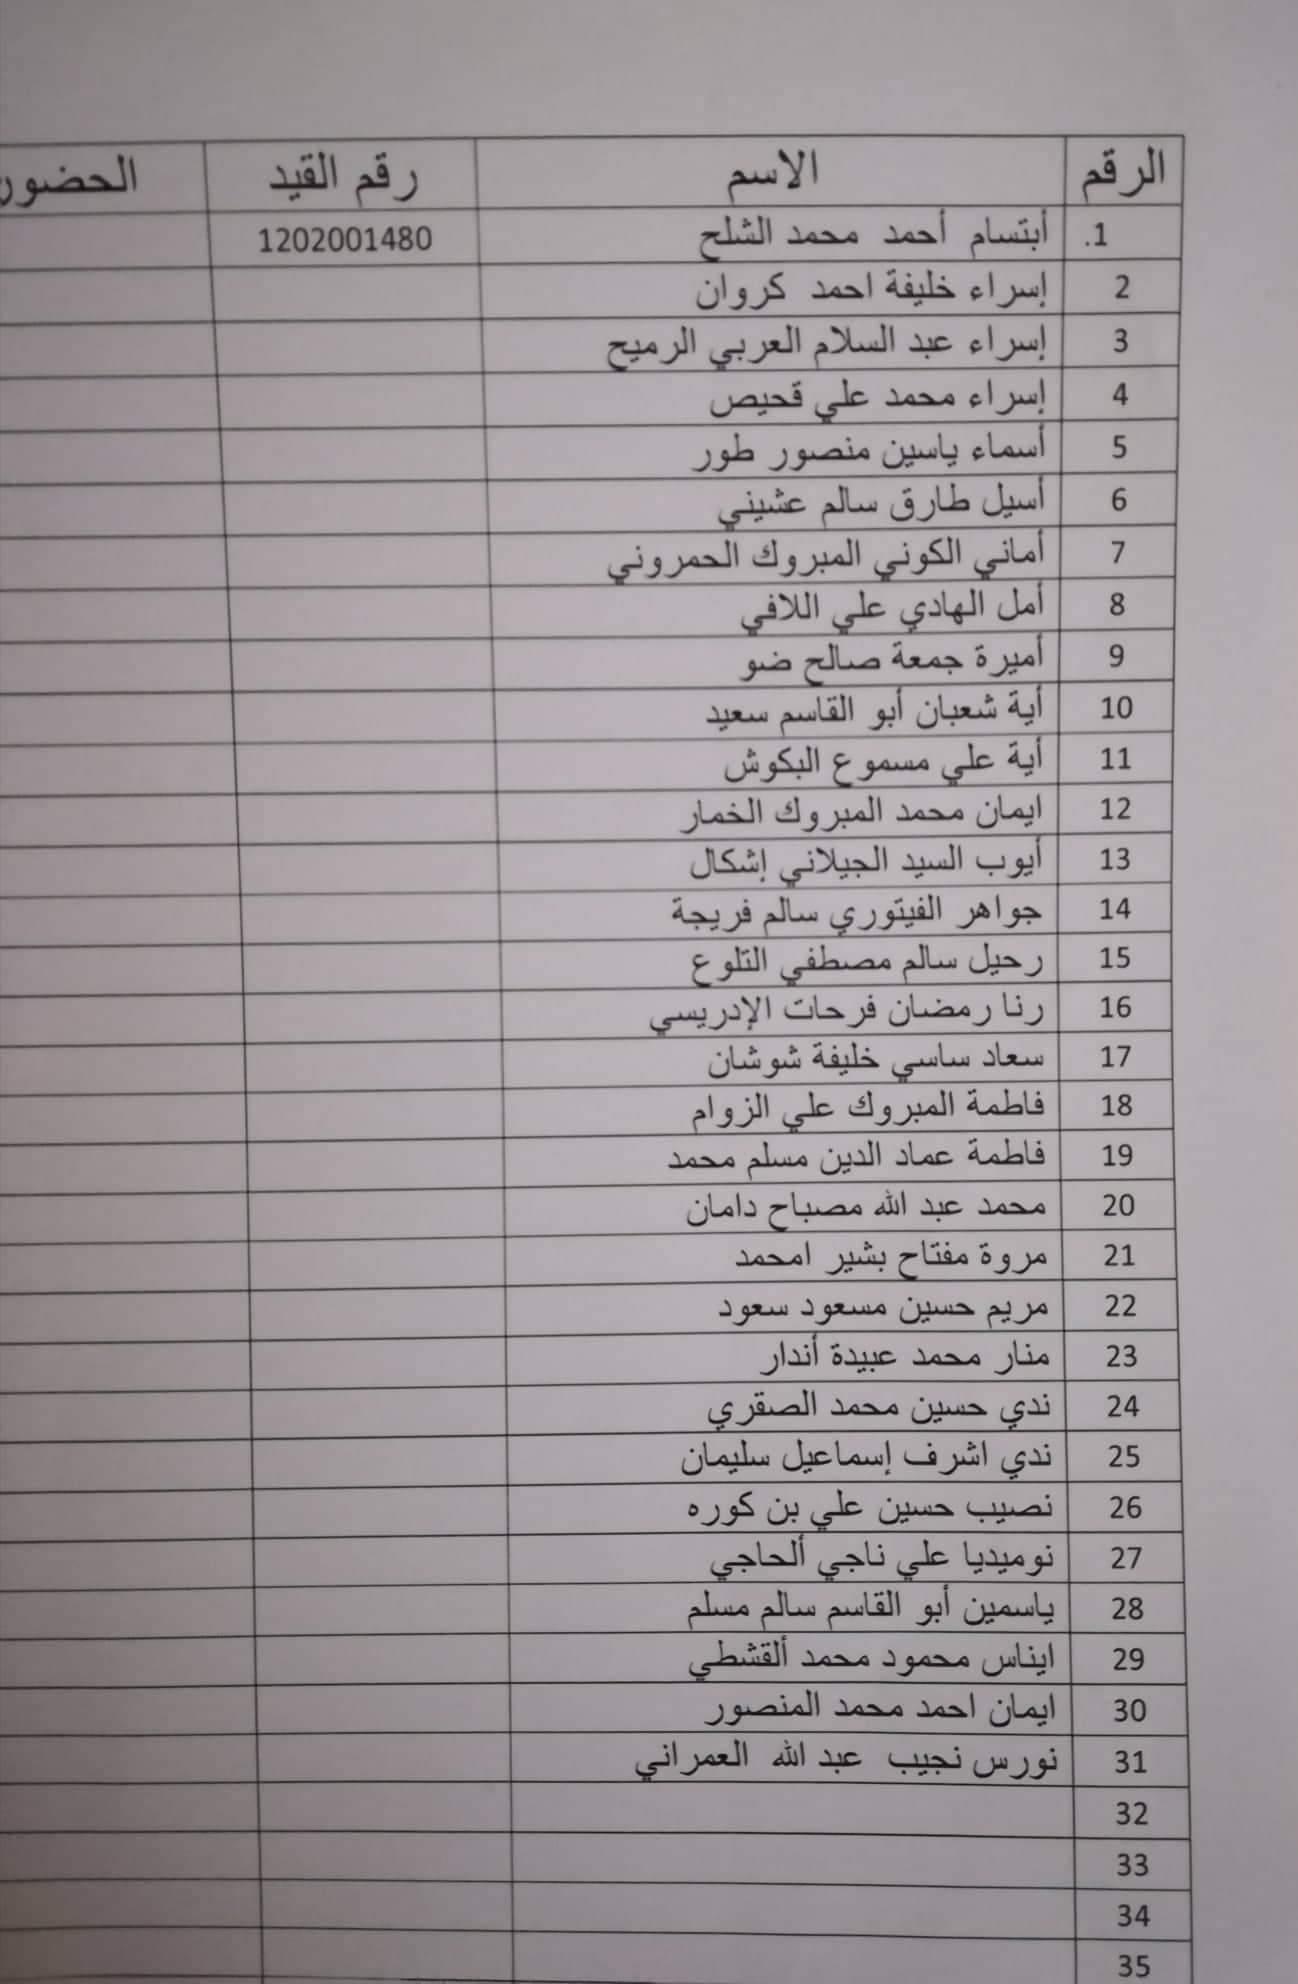 الرقم الاسم رقم القيد الحضور
1. أبتسام أحمد محمد الشلح 1202001480
2 إسراء خليفة احمد كروان
3 إسراء عبد السلام العربي الرميح
4 إسراء محمد علي قحيص
5 أسماء ياسين منصور طور
6 أسيل طارق سالم عشيني
7 أماني الكوني المبروك الحمروني
8 أمل الهادي علي اللافي
9 أميرة جمعة صالح ضو
10 أية شعبان أبو القاسم سعيد
11 أية علي مسموع البكوش
12 ايمان محمد المبروك الخمار
13 أيوب السيد الجيلاني إشكال
14 جواهر الفيتوري سالم فريجة
15 رحيل سالم مصطفي التلوع
16 رنا رمضان فرحات الإدريسي
17 سعاد ساسي خليفة شوشان
18 فاطمة المبروك علي الزوام
19 فاطمة عماد الدين مسلم محمد
20 محمد عبد الله مصباح دامان
21 مروة مفتاح بشير امحمد
22 مريم حسين مسعود سعود
23 منار محمد عبيدة أندار
24 ندي حسين محمد الصقري
25 ندي اشرف إسماعيل سليمان
26 نصيب حسين علي بن كوره
27 نوميديا علي ناجي ألحاجي
28 ياسمين أبو القاسم سالم مسلم
29 ايناس محمود محمد ألقشطي
30 ايمان احمد محمد المنصور
31 نورس نجيب عبد الله العمراني
32
33
34
35